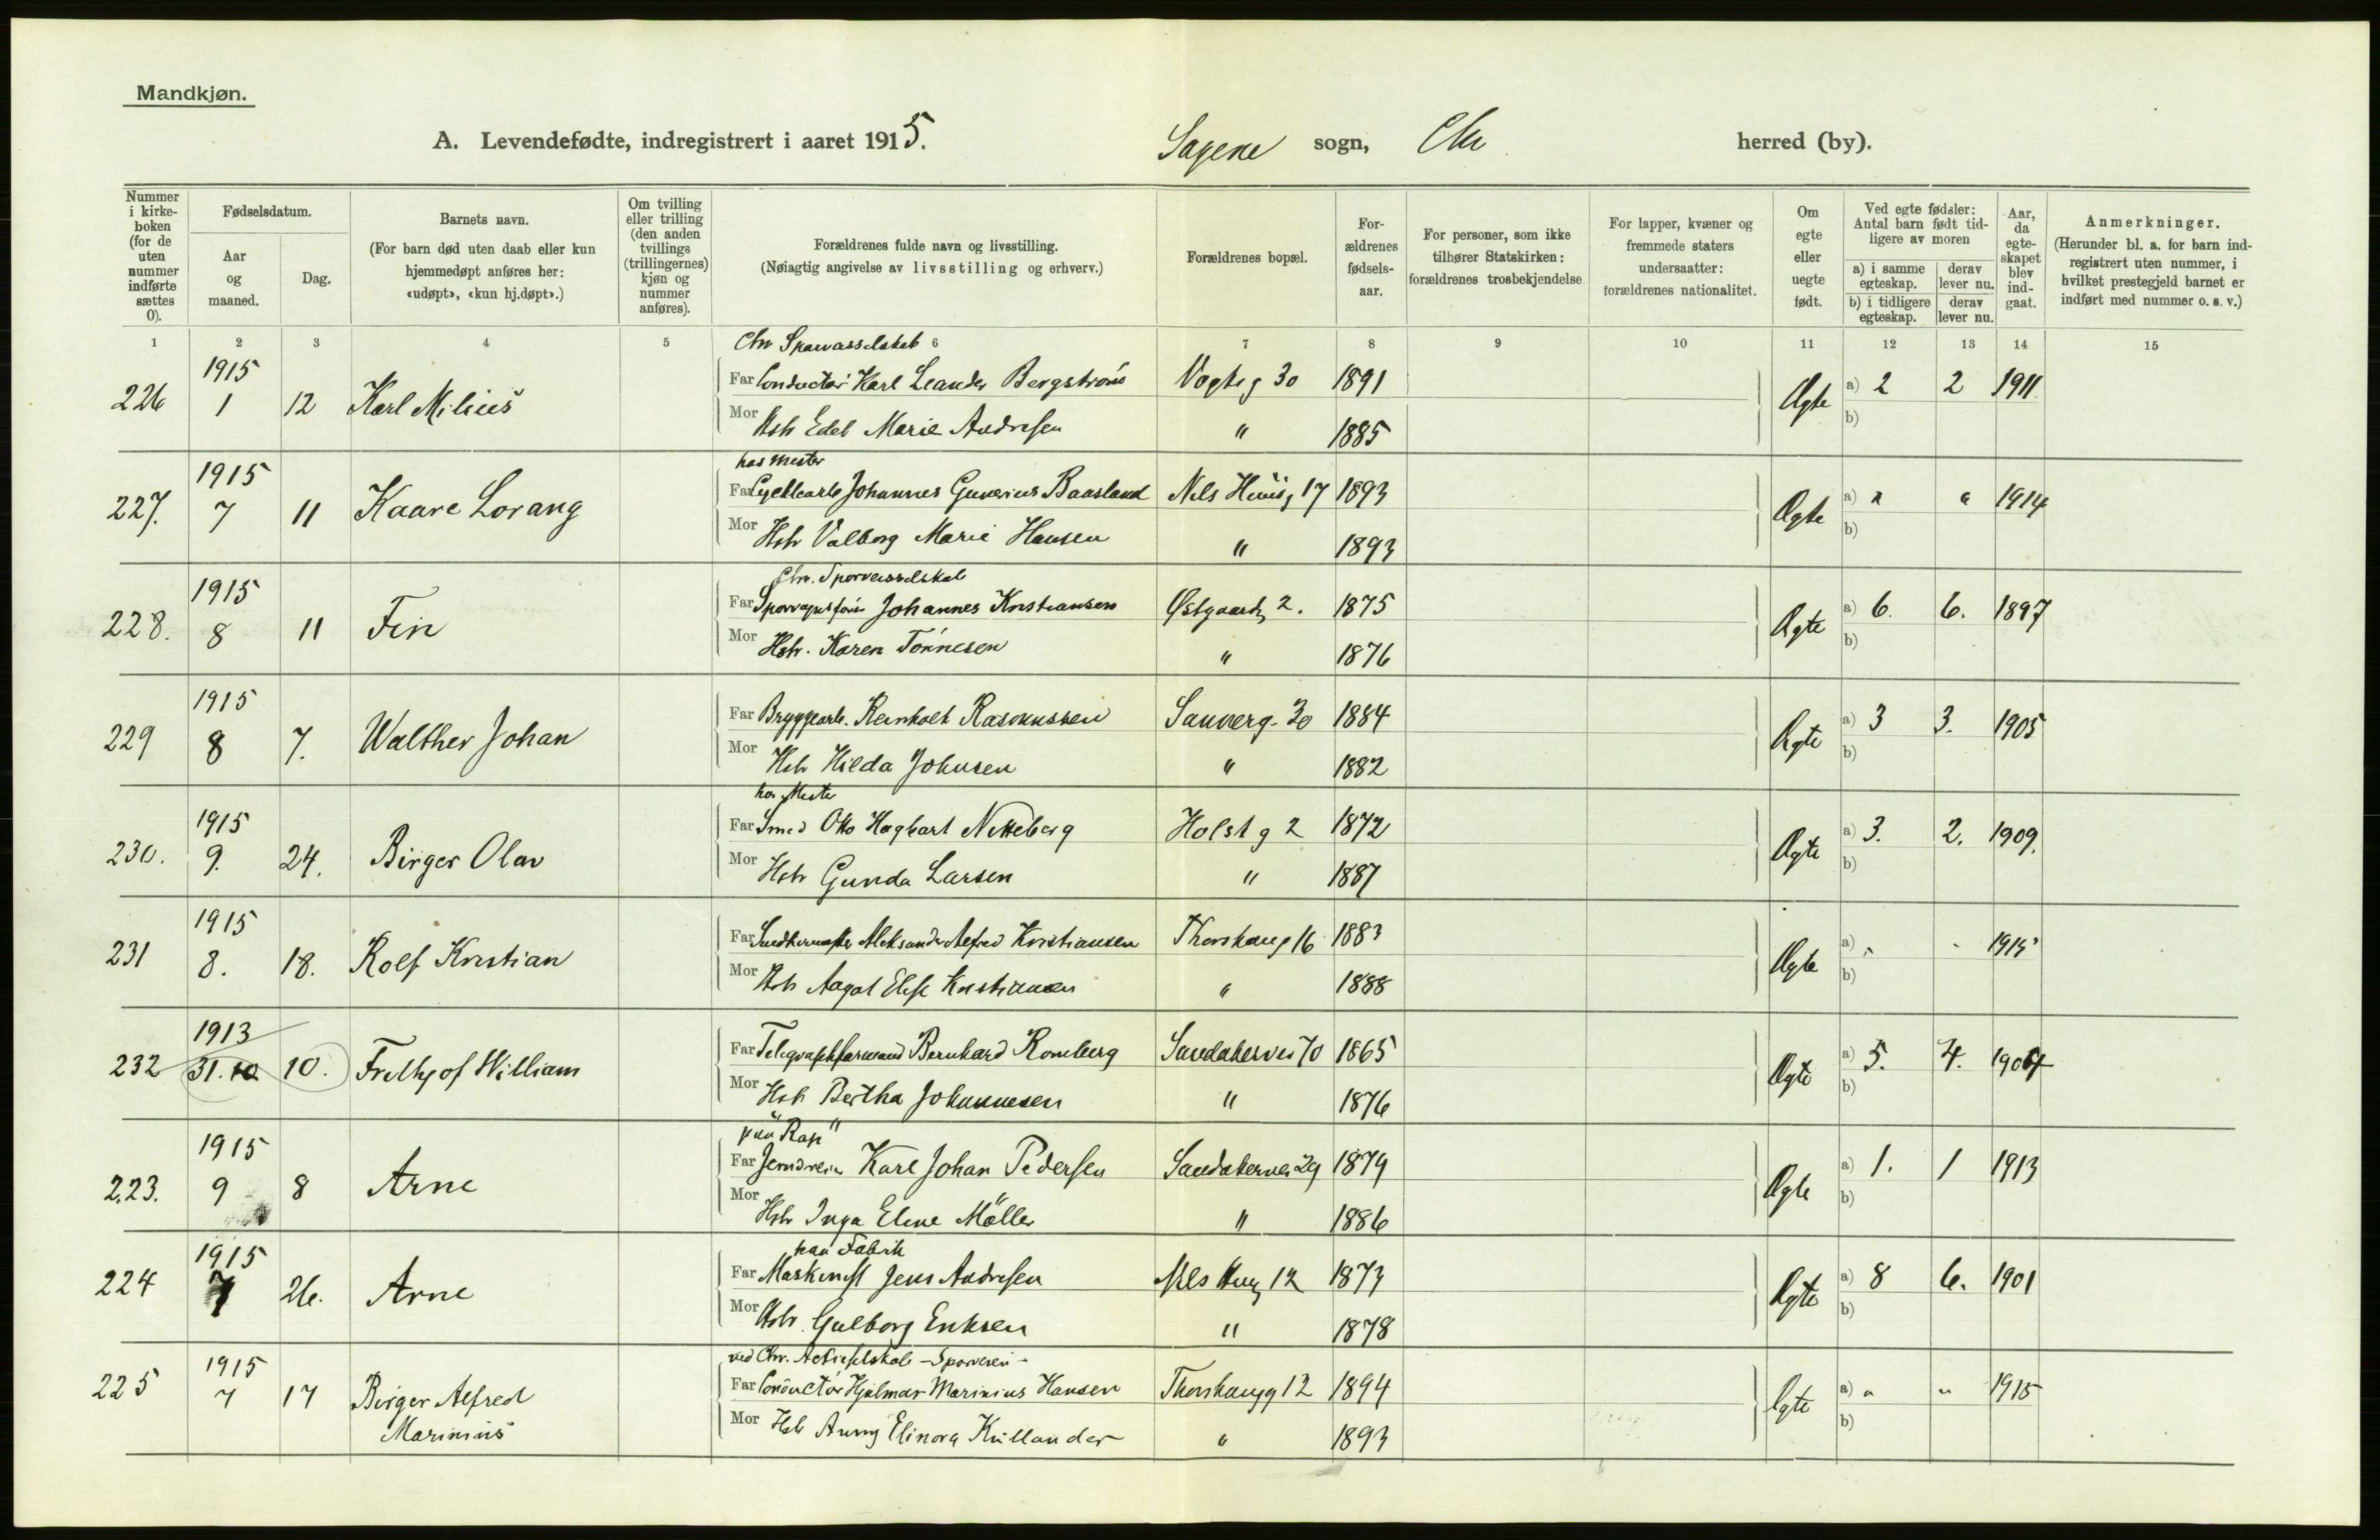 Mandkjøn.
A. Levendefødte, indregistrert i aaret 1915. Sagene sogn, Chr herred (by).
Nummer i kirke-boken (for de uten nummer indførte sættes 0).
Fødselsdatum.
Aar og maaned.
Dag.
Barnets navn.
(For barn død uten daab eller kun hjemmedøpt anføres her: «udøpt», «kun hj.døpt».)
Om tvilling eller trilling (den anden tvillings (trillingernes) kjøn og nummer anføres).
Forældrenes fulde navn og livsstilling.
(Nøiagtig angivelse av livsstilling og erhverv.)
Forældrenes bopæl.
For-ældrenes fødsels-aar.
For personer, som ikke tilhører Statskirken: forældrenes trosbekjendelse
For lapper, kvæner og fremmede staters undersaatter: forældrenes nationalitet.
Om egte eller uegte født.
Ved egte fødsler: Antal barn født tid-ligere av moren
a) i samme egteskap.
derav lever nu.
b) i tidligere egteskap.
derav lever nu.
Aar, da egte-skapet blev ind-gaat.
Anmerkninger.
(Herunder bl. a. for barn ind-registrert uten nummer, i hvilket prestegjeld barnet er indført med nummer o. s. v.)
1 2 3 4 5 6 7 8 9 10 11 12 13 14 15
Chr Sporveisselskab
226 1915 1 12 Karl Milius Far Conductør Karl Leander Bergstrøm Vogts g 30 1891 Ægte a) 2 2 1911
Mor Hstr Edel Marie Andresen " 1885 b)
hos Mester
227. 1915 7 11 Kaare Lorang Far Johannes Gunerius Baasland Nils Huusg 17 1893 Ægte a) " " 1914
Mor Hstr Valborg Marie Hansen " 1893 b)
Chr. Sporveisselskab
228. 1915 8 11 Fin Far Sporvognsfører Johannes Kristiansen Østgaardsg 2. 1875 Ægte a) 6. 6. 1897
Mor Hstr. Karen Tønnesen " 1876 b)
229 1915 8 7. Walther Johan Far Bryggearb. Reinholt Rasmussen Sannerg. 30 1884 Ægte a) 3 3. 1905
Mor Hstr Hilda Johnsen " 1882 b)
hos Mester
230. 1915 9. 24. Birger Olav Far Smed Otto Hagbart Nitteberg Holst g 2 1872 Ægte a) 3. 2. 1909.
Mor Hstr Gunda Larsen " 1887 b)
231 1915 8. 18. Rolf Kristian Far Aleksander Alfred Kristiansen Thorshaug 16 1883 Ægte a) " " 1915
Mor Hstr Aagot Elise Kristiansen " 1888 b)
232 1913 31. 10 10. Fridtjof William Far Telegrafformand Bernhard Romberg Sandakervei 70 1865 Ægte a) 5. 4. 1904
Mor Hstr Bertha Johannesen " 1876 b)
paa "Rap"
223. 1915 9 8 Arne Far Jerndreier Karl Johan Pedersen Sandakervei 29 1879 Ægte a) 1. 1 1913
Mor Hstr Inga Eline Møller " 1886 b)
paa Fabrik
224 1915 7 26. Arne Far Maskinist Jens Andresen Nils Huusg 12 1873 Ægte a) 8 6. 1901
Mor Hstr. Gulborg Eriksen " 1878 b)
ved Chr. Actieselskab - Sporveien -
225 1915 7 17 Birger Alfred Marinius Far Conductør Hjalmar Marinius Hansen Thorshaugg 12 1894 Ægte a) " " 1915
Mor Hstr Anny Elinora Kullander " 1893 b)